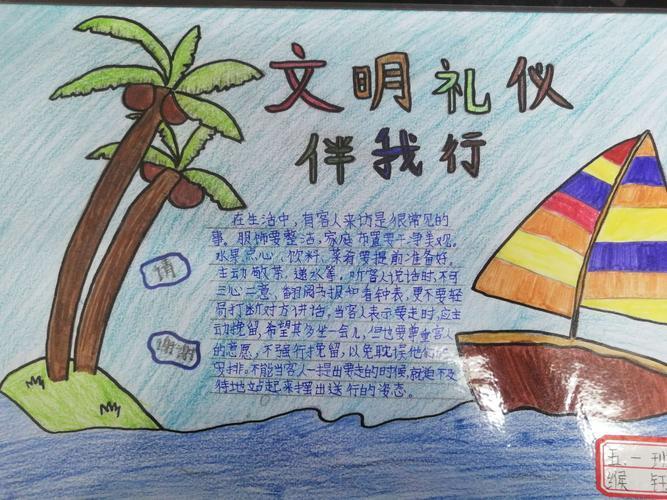 文明礼仪
伴我行
在生活中,有客人来访是很常见的
事。服饰要整洁,家庭布置要干净美观。
水果点心、饮料、菜肴要提前准备好。
主动敬茶、递水等。听客人说话时,不可
三心二意、翻阅书报和看钟表,更不要轻
易打断对方讲话,当客人表示要走时,应主
动挽留,希望其多坐一会儿,但也要尊重客人
的意愿,不强行挽留,以免耽误他们
安排。不能当客人一提出要走的时候,就迫不及
待地站起来摆出送行的姿态。
请
谢谢
五.一班
缑 轩